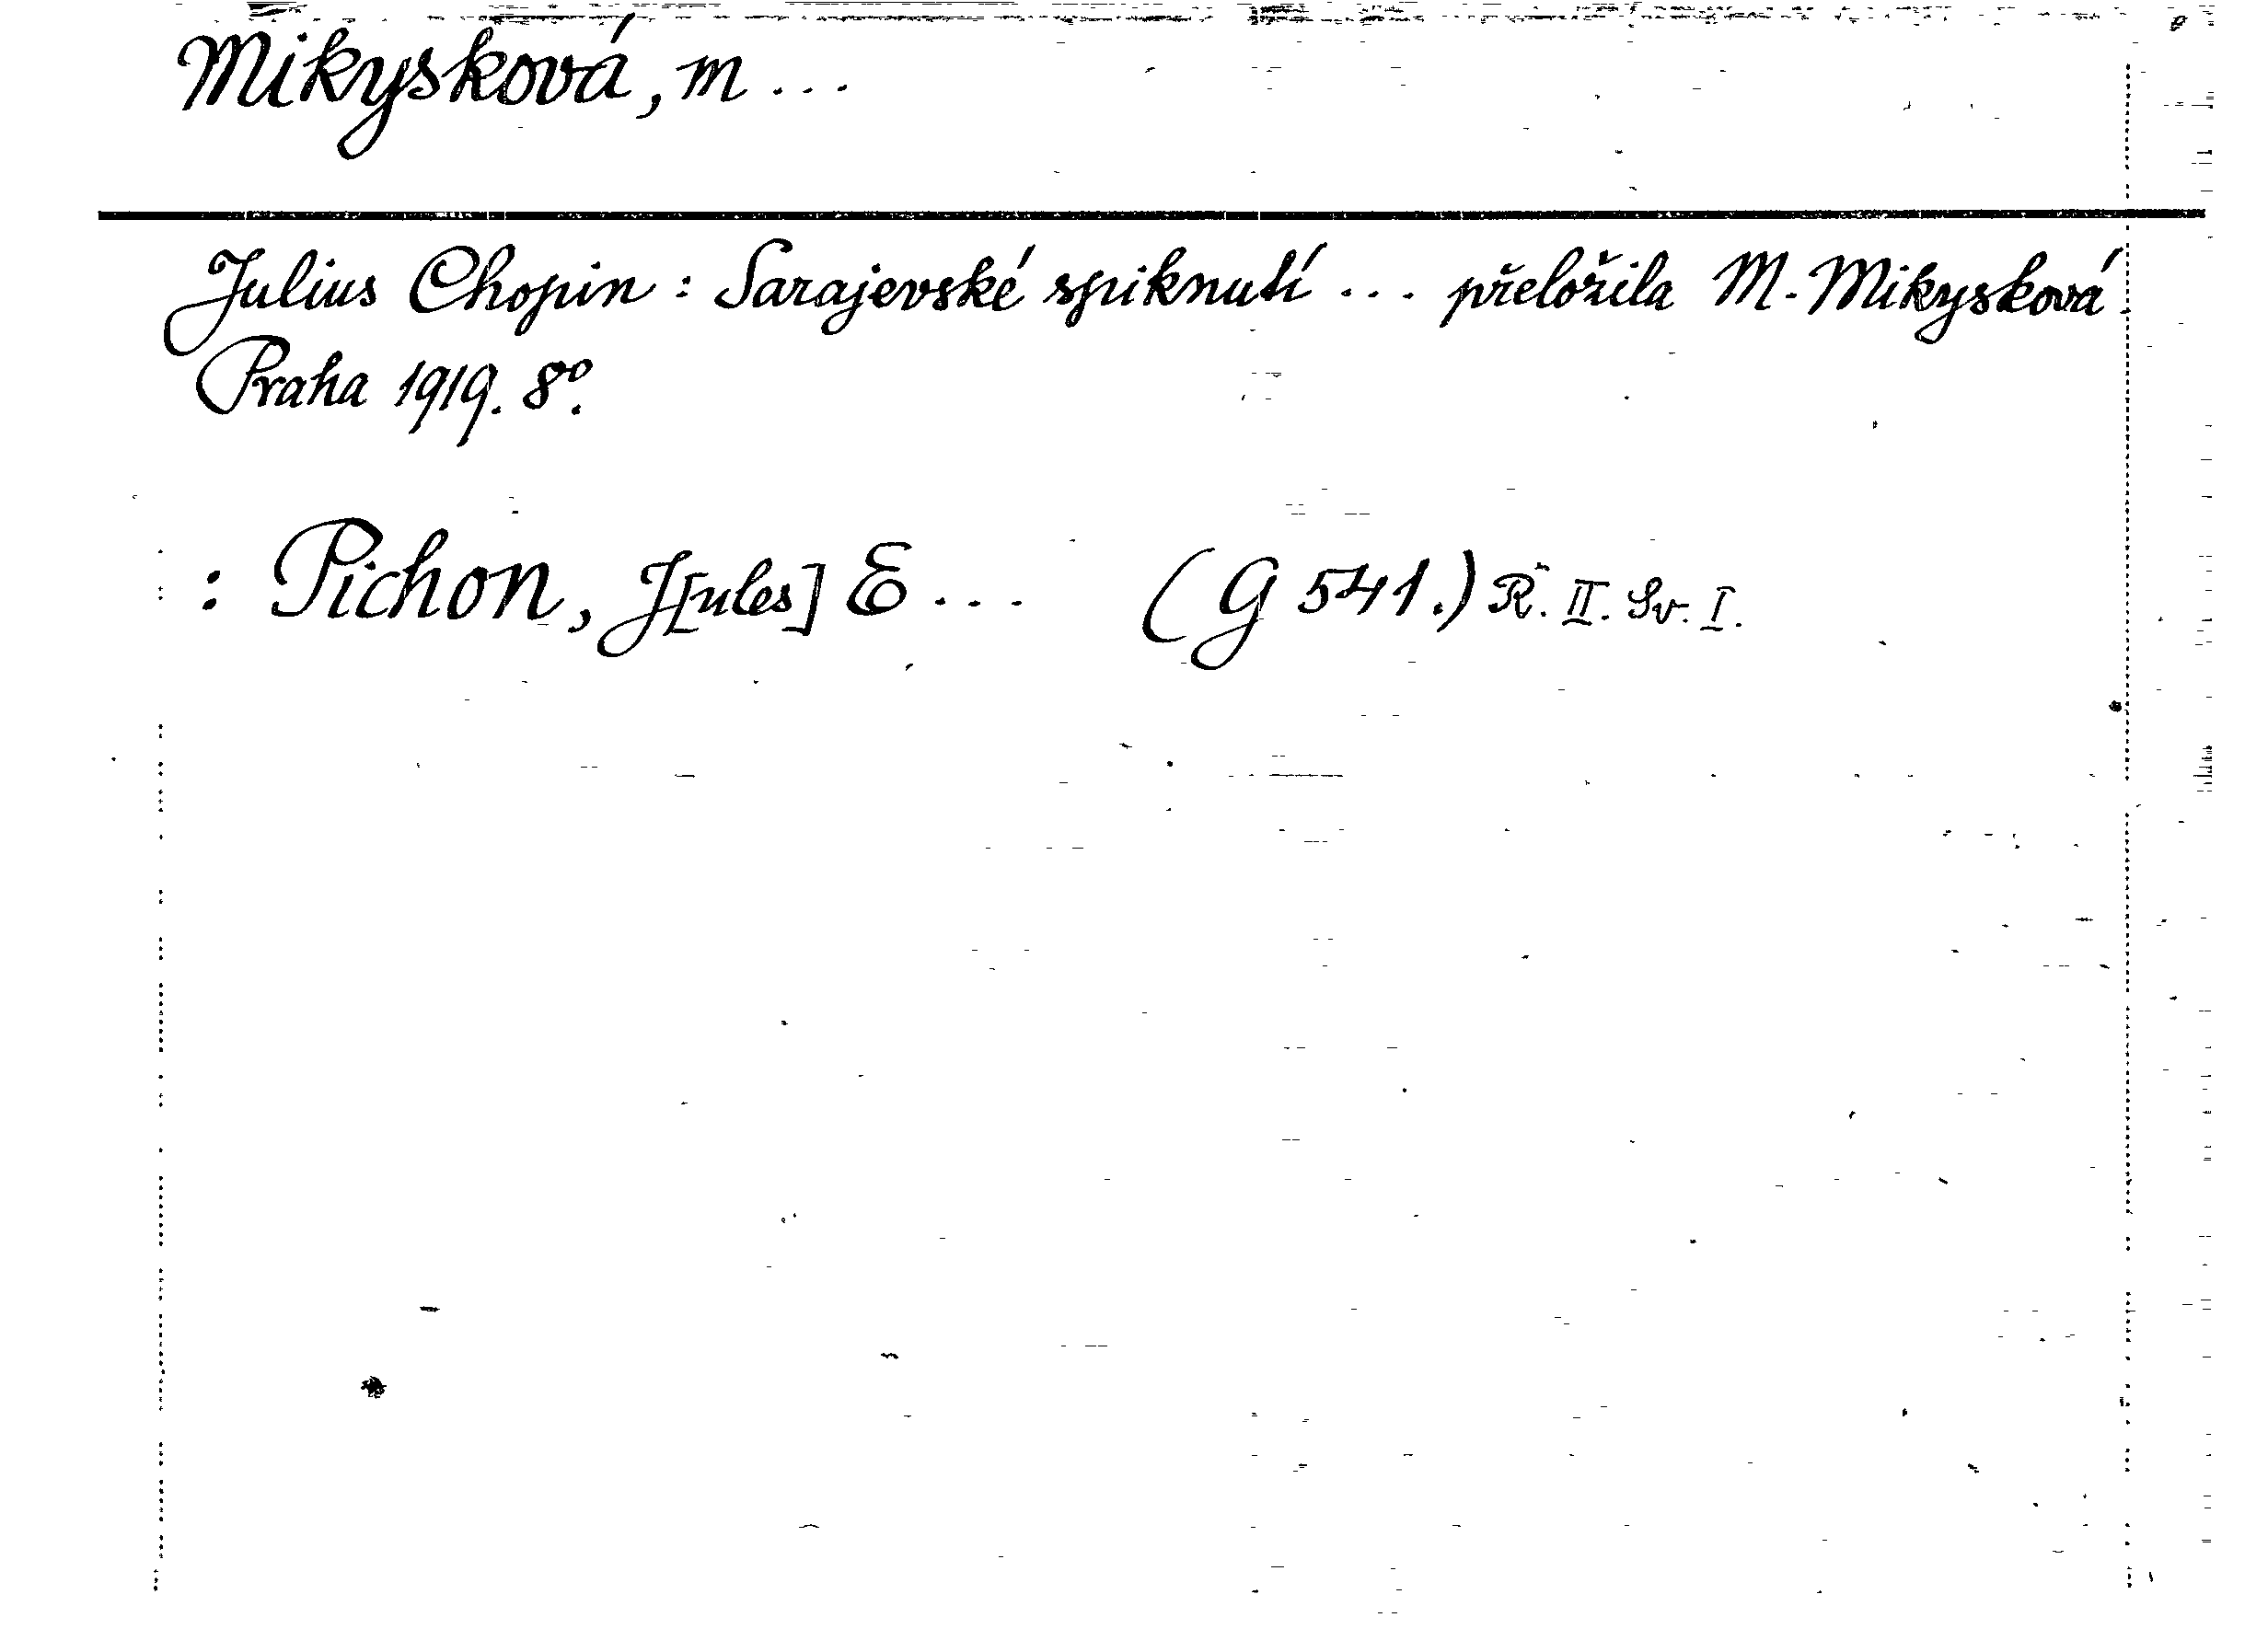 Mikysková, M...
Julius Chopin: Sarajevské spiknutí ... přeložila M. Mikysková.
Praha 1919. 8°.
: Pichon, J[ules] E... (G 541.) Ř. II. Sv. I.